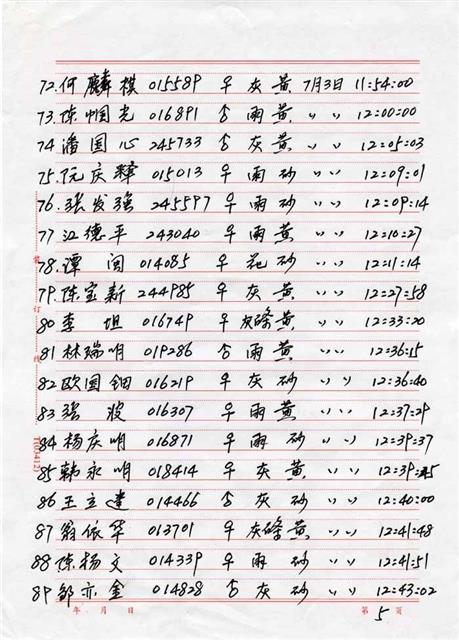 72.何麟棋 015589 ♀ 灰 黄 7月3日 11:54:00
73.陈帼光 016891 ♂ 雨 黄 〃 12:00:00
74.潘国心 245733 ♂ 灰 黄 〃 12:05:03
75.阮庆释 015013 ♀ 雨 砂 〃 12:09:01
76.张发强 245597 ♀ 雨 砂 〃 12:09:14
77 江德平 243040 ♀ 雨 黄 〃 12:10:27
78.谭 闯 014085 ♀ 花 砂 〃 12:11:14
79.陈宝新 244985 ♀ 灰 黄 〃 12:27:58
80 李 坦 016749 ♀ 灰绦 黄 〃 12:33:20
81 林瑞明 019286 ♂ 雨 黄 〃 12:36:15
82 欧国钿 016219 ♀ 灰 砂 〃 12:36:40
83 张 波 016307 ♀ 雨 黄 〃 12:37:29
84 杨庆明 016871 ♀ 雨 砂 〃 12:39:37
85 韩永明 018414 ♀ 灰 黄 〃 12:39:45
86 王立建 014466 ♂ 灰 砂 〃 12:40:00
87 翁依华 013701 ♀ 灰绦 黄 〃 12:41:48
88 陈杨文 014339 ♀ 雨 砂 〃 12:41:51
89 邹亦金 014828 ♂ 灰 砂 〃 12:43:02
年 月 日 第 5 页
装
订
线
(3412)